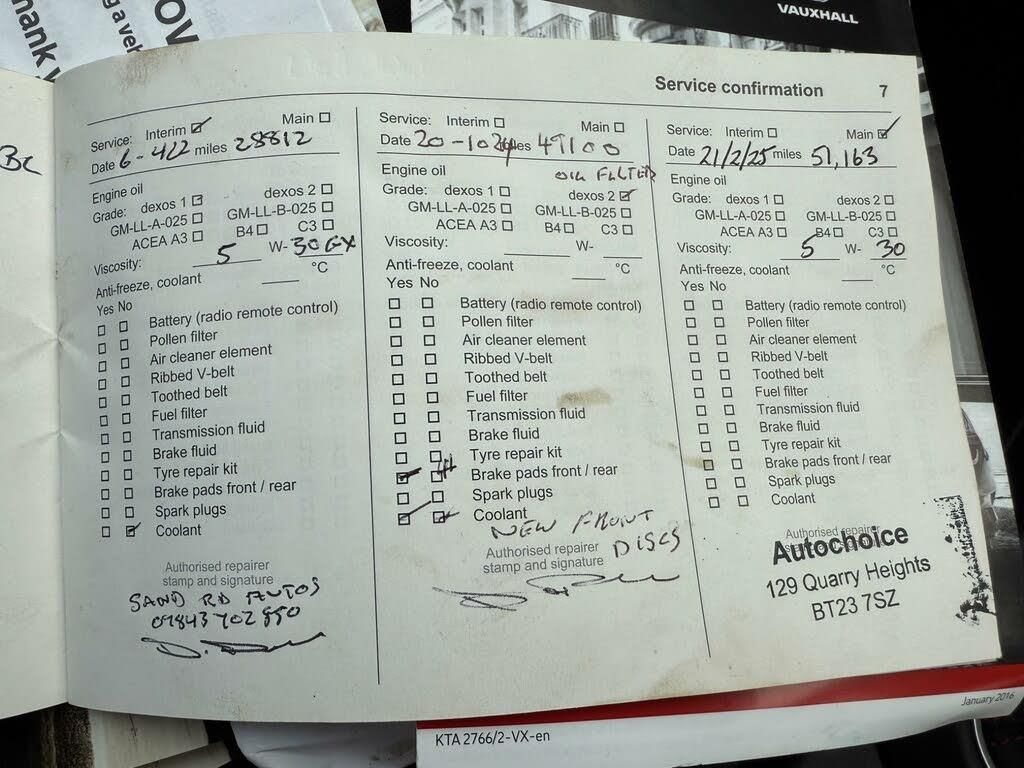 VAUXHALL
Service confirmation 7
Bc
Service: Interim ☑ Main ☐
Date 6-4/22 miles 28812
Engine oil
Grade: dexos 1 ☑ dexos 2 ☐
GM-LL-A-025 ☐ GM-LL-B-025 ☐
ACEA A3 ☐ B4 ☐ C3 ☐
Viscosity: 5 W- 30 GX
Anti-freeze, coolant ____ °C
Yes No
☐ ☐ Battery (radio remote control)
☐ ☐ Pollen filter
☐ ☐ Air cleaner element
☐ ☐ Ribbed V-belt
☐ ☐ Toothed belt
☐ ☐ Fuel filter
☐ ☐ Transmission fluid
☐ ☐ Brake fluid
☐ ☐ Tyre repair kit
☐ ☐ Brake pads front / rear
☐ ☐ Spark plugs
☐ ☑ Coolant
Authorised repairer
stamp and signature
SAND RD AUTOS
Service: Interim ☐ Main ☐
Date 20-10-24 miles 49100
Engine oil OIL FILTER
Grade: dexos 1 ☐ dexos 2 ☑
GM-LL-A-025 ☐ GM-LL-B-025 ☐
ACEA A3 ☐ B4 ☐ C3 ☐
Viscosity: ____ W- ____
Anti-freeze, coolant ____ °C
Yes No
☐ ☐ Battery (radio remote control)
☐ ☐ Pollen filter
☐ ☐ Air cleaner element
☐ ☐ Ribbed V-belt
☐ ☐ Toothed belt
☐ ☐ Fuel filter
☐ ☐ Transmission fluid
☐ ☐ Brake fluid
☐ ☐ Tyre repair kit
☑ ☐ Brake pads front / rear
☐ ☐ Spark plugs
☑ ☐ Coolant
NEW FRONT
DISCS
Authorised repairer
stamp and signature
Service: Interim ☐ Main ☑
Date 21/2/25 miles 51,163
Engine oil
Grade: dexos 1 ☐ dexos 2 ☐
GM-LL-A-025 ☐ GM-LL-B-025 ☐
ACEA A3 ☐ B4 ☐ C3 ☐
Viscosity: 5 W- 30
Anti-freeze, coolant ____ °C
Yes No
☐ ☐ Battery (radio remote control)
☐ ☐ Pollen filter
☐ ☐ Air cleaner element
☐ ☐ Ribbed V-belt
☐ ☐ Toothed belt
☐ ☐ Fuel filter
☐ ☐ Transmission fluid
☐ ☐ Brake fluid
☐ ☐ Tyre repair kit
☐ ☐ Brake pads front / rear
☐ ☐ Spark plugs
☐ ☐ Coolant
Authorised repairer
Autochoice
129 Quarry Heights
BT23 7SZ
January 2016
KTA 2766/2-VX-en